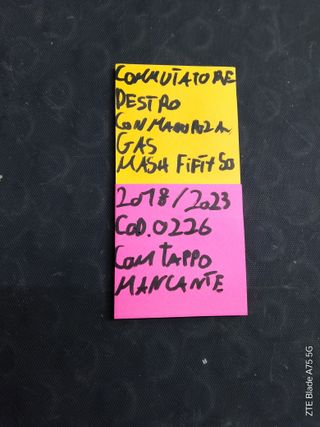 COMMUTATORE
DESTRO
CON MANOPOLA
GAS
MASH FIFTY 50
2018/2023
COD.0226
COM TAPPO
MANCANTE
ZTE Blade A75 5G